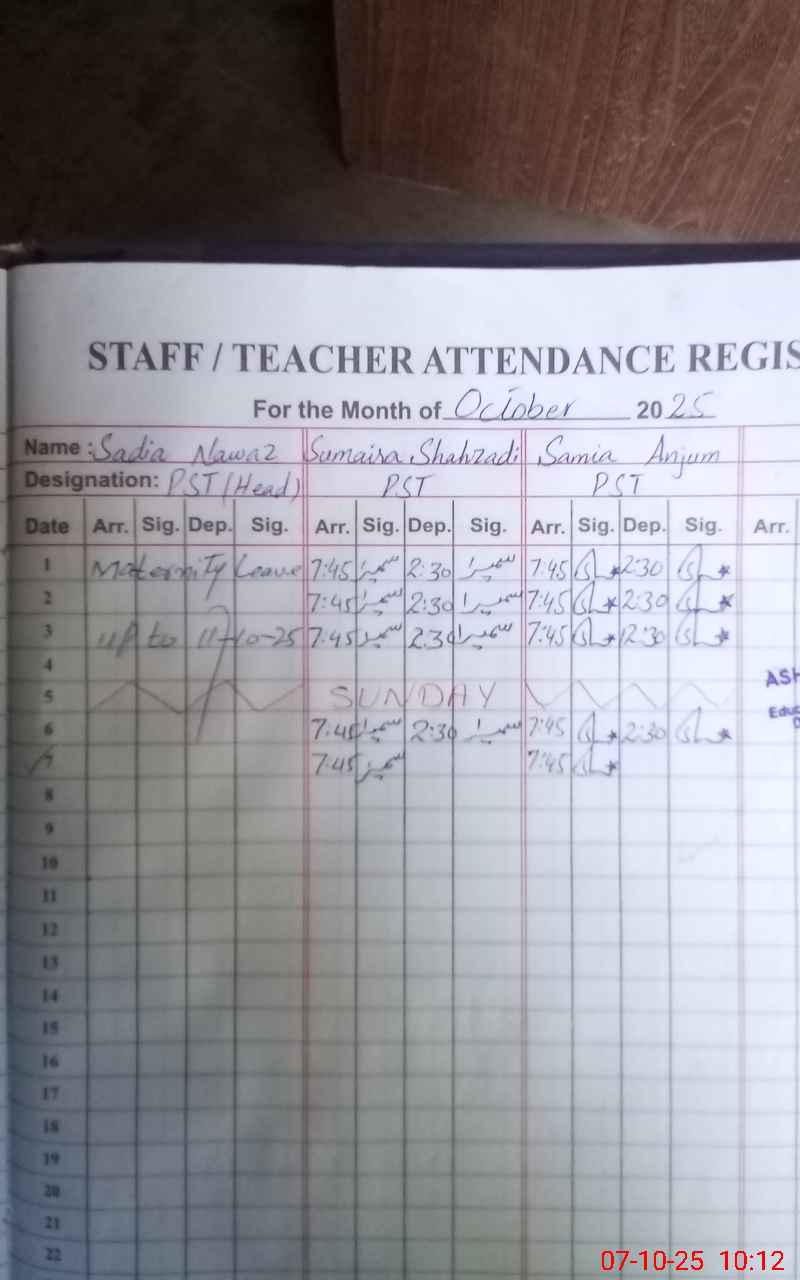 STAFF / TEACHER ATTENDANCE REGIS
For the Month of October 2025
Name : Sadia Nawaz Sumaira Shahzadi Samia Anjum
Designation: PST (Head) PST PST
Date Arr. Sig. Dep. Sig. Arr. Sig. Dep. Sig. Arr. Sig. Dep. Sig. Arr.
1 Maternity Leave 7:45 سمیرا 2:30 سمیرا 7:45 2:30
2 7:45 سمیرا 2:30 سمیرا 7:45 2:30
3 up to 11-10-25 7:45 سمیرا 2:30 سمیرا 7:45 2:30
4
5 SUNDAY
6 7:45 سمیرا 2:30 سمیرا 7:45 2:30
7 7:45 سمیرا 7:45
8
9
10
11
12
13
14
15
16
17
18
19
20
21
22
ASH
Educ
07-10-25 10:12